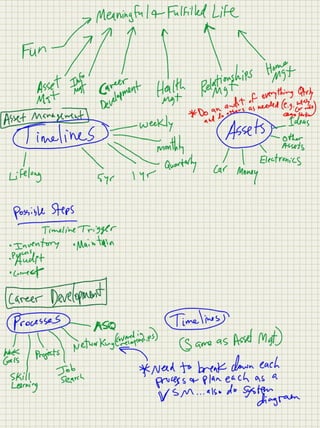 Meaningful & Fulfilled Life
Fun
Asset Mgt
Info Mgt
Career Development
Health Mgt
Relationships Mgt
Home Mgt
*Do an audit of everything Qtrly
and do others as needed (e.g.
Asset Management
Timelines
weekly
monthly
Quarterly
1yr
5yr
Lifelong
Assets
Ideas
Other Assets
Electronics
Money
Car
Possible Steps
Timeline Trigger
• Inventory
• Maintain
Audit
• Connect
Career Development
Processes
ASQ
Networking
Job Search
Projects
Skill Learning
Goals
Timelines
(Same as Asset Mgt)
*Need to break down each
process & plan each as a
VSM...also do system
diagram